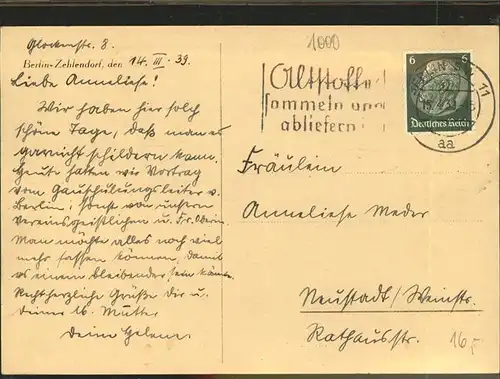 Glockenstr. 8.
Berlin-Zehlendorf, den 14. III. 39.
Liebe Anneliese!
Wir haben hier solch
schöne Tage, daß man es
garnicht schildern kann.
Heute hatten wir Vortrag
vom Gauschulungsleiter v.
Berlin, sonst von unsern
Vereinsgeistlichen u. Fr. Oberin.
Man möchte alles noch viel
mehr fassen können, damit
es einem bleibender sein könnte.
Recht herzliche Grüße Dir u.
Deiner lb. Mutter
Deine Helene
1000
Altstoffe
sammeln und
abliefern
6 5
Deutsches Reich
BERLIN SW 11
aa
Fräulein
Anneliese Meder
Neustadt/Weinstr.
Rathausstr.
16,-